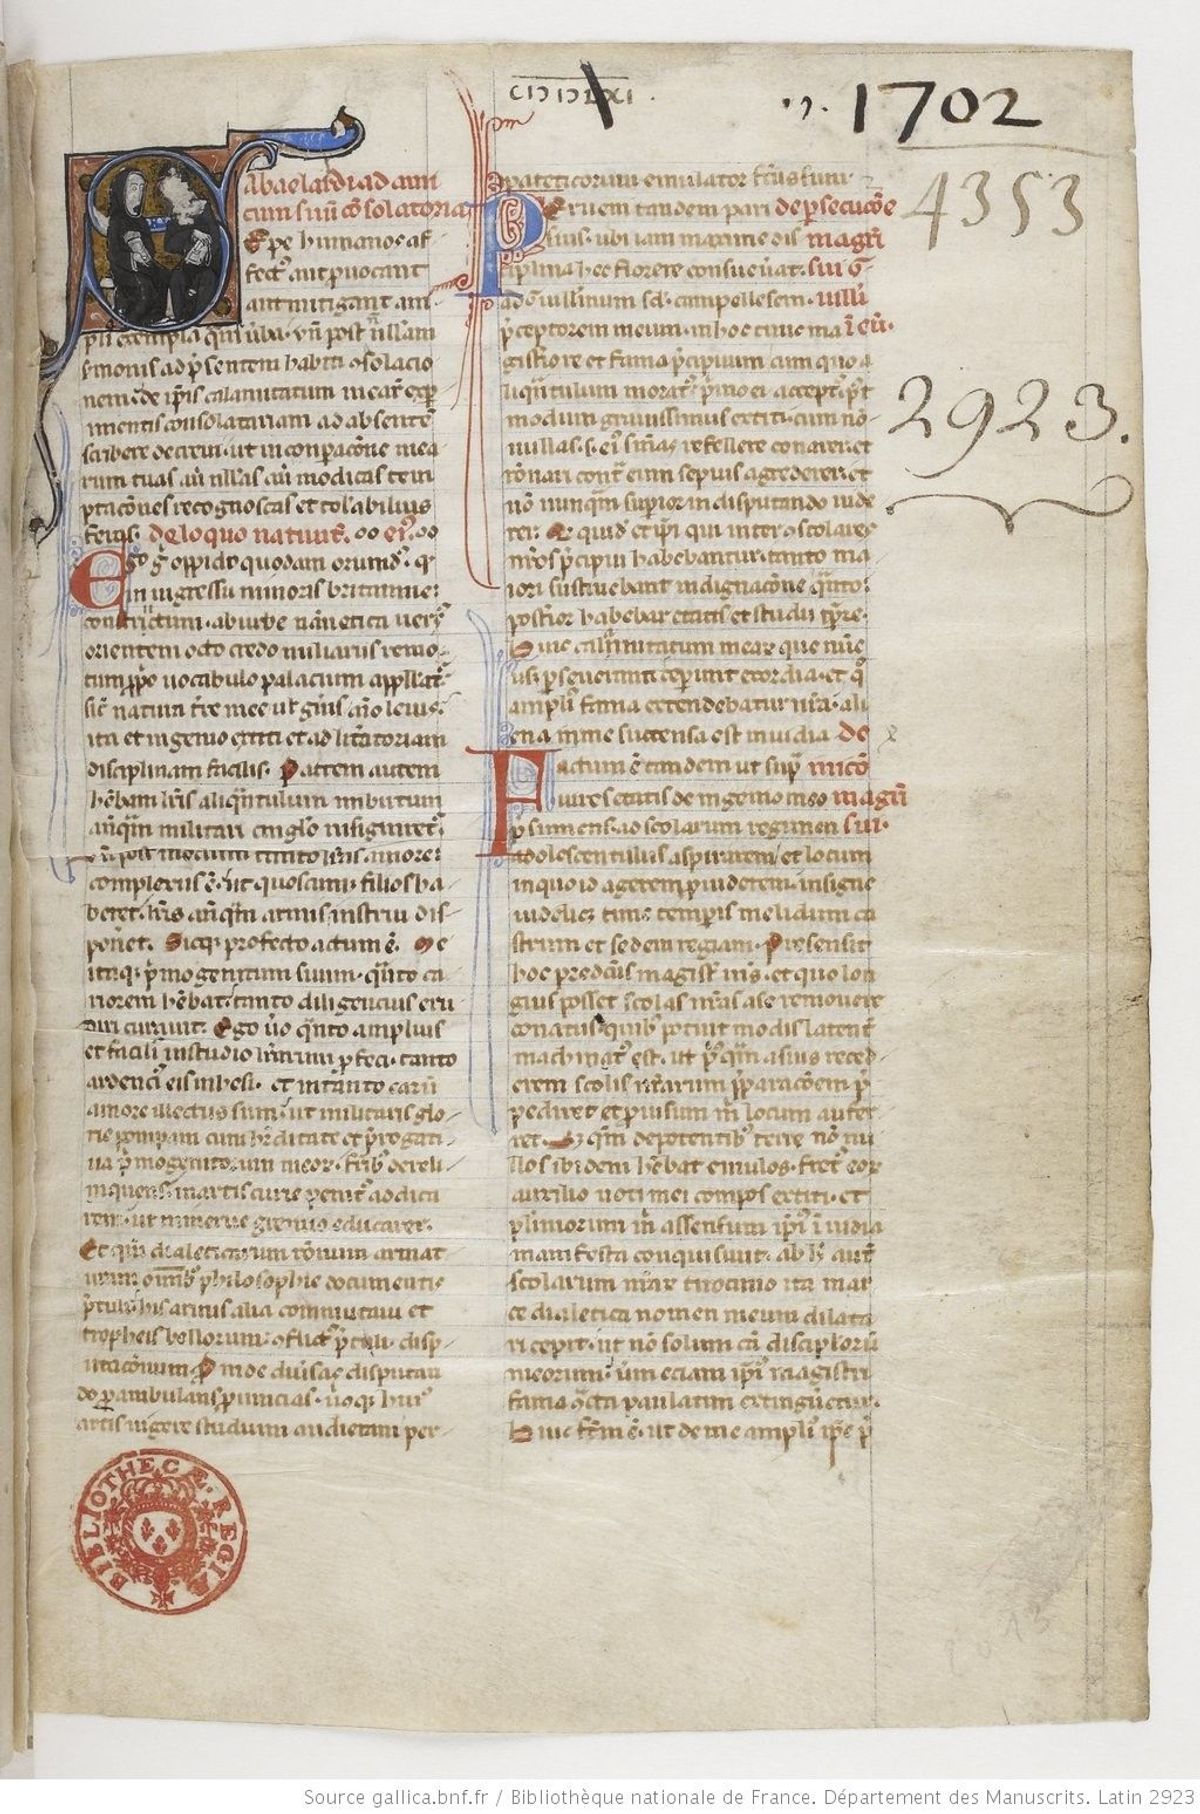 CIƆ IƆ LXI.
n. 1702
4353
2923.
abaelardi ad ami
cum suū c̄solatoria
Sepe humanos af
fectꝰ aut ꝓuocant
aut mitigant am
pliꝰ exempla q̄m ūba. vn̄ post nōnullam
smonis ad p̄sentem habiti ɔsolacio
nem de ip̄is calamitatum mearꝝ exper
imentis consolatoriam ad absentē
scribere decreui ut in conparacōne mea
rum tuas aū nllas aū modicas tem
ptacōnes recognoscas et tolabilius
feras. de loquo natiuit̄. eiꝰ.
Ego gͥ oppido quodam oriundꝰ. qͣ
in ingressu minoris britannie
constructum. ab urbe nānetica uersꝰ
orientem octo credo miliariis remo
tum ꝓprie uocabulo palacium appellat̄
sic̄ natura t̄re mee ul̄ gn̄is aīo leuis
ita et ingenio extiti et ad litt̄atoriam
disciplinam facilis. Patrem autem
hēbam litt̄is aliqn̄tulum imbutum
anꝗm militari cingl̄o insigniret̄
vn̄ post modum tanto litt̄is amore
complexus ē. ut quoscumꝗ filios ha
beret. litt̄is anꝗm armis instrui dis
pon̄et. Sicꝗ profecto actum ē. Me
itaꝗ p̄mogenitum suum. qn̄to ca
riorem hēbat. tanto diligencius eru
diri curauit. Ego ūo qn̄to amplius
et faciliꝰ in studio litt̄arum profeci. tanto
ardenciꝰ eis inhesi. et in tanto earū
amore illectus sum. ut militaris glo
rie pompam cum hēreditate et p̄rogati
ua p̄mogenitorum meorꝝ. fr̄ibꝰ dereli
nquens. martis curie penitꝰ abdica
rem. ut minerue gremio educarer.
Et qm̄ dialecticarum rōnum armat
uram omibꝰ philosophie documentis
p̄tuli. his armis alia commutaui et
tropheis bellorum ɔflictꝰ p̄tuli disp
utacōnum. Proinde diūsas disputan
do perambulans ꝓuincias. ubicūꝗ huiꝰ
artis uigere studium audieram per
ypateticorum emulator fc̄us sum.
Perueni tandem parisiꝰ de persecucōne
siuꝰ. ubi iam maxime dis magr̄i
ciplina hec florere consueūat. sui G
ad Guillm̄um s. campellesem. uilli
p̄ceptorem meum. in hoc tunc ma ī eū.
gisterio re et fama p̄cipuum cum quo a
liqn̄tulum moratꝰ p̄mo ei acceptꝰ pꝰt
modum grauissimus extiti. cum nō
nullas .s. eiꝰ sn̄ias refellere conarer. et
rōnari cont̄ eum sepius agrederer. et
nō nunꝗm supior in disputando uide
rer. Et quidē et ip̄i qui inter ɔscolares
nr̄os p̄cipui habebantur. tanto ma
iori sustinebant indignacōne qn̄to
posterior habebar etatis et studii tp̄re.
Hinc calamitatum mearꝝ que nūc
usꝗ perseuerant ceperunt exordia. et qͦ
ampliꝰ fama extendebatur nr̄a. ali
ena in me succensa est inuidia de
Factum ē tandem ut sup̄ inicō
uires etatis de ingenio meo magr̄ii
p̄sumens. ad scolarum regimen sui.
adolescentulus aspirarem. et locum
in quo id agerem prouiderem. insigne
uidelicꝫ tunc temporis meliduni ca
strum et sedem regiam. Presensit
hoc predictus magist̄ mūs. et quo lon
gius posset scolas nr̄as a se remouere
conatus. quibꝰ potuit modis latent̄
machinatꝰ est. ut pꝰꝗm a suis reced
erem scolis nr̄arum p̄paracōem p̄
pediret et prouisum m̄ locum aufer
ret. Sꝫ qm̄ de potentibꝰ terre nōnu
llos ibidem hēbat emulos. fretꝰ eorꝝ
auxilio uoti mei compos extiti. et
plimorum m̄ assensum ip̄iꝰ īuidia
manifesta conquisiuit. ab hꝰ aut̄
scolarum nr̄arꝝ tirocinio ita in ar
te dialetica nomen meum dilata
ri cepit. ut nō solum cōdisciplorū
meorum. uerum eciam ip̄iꝰ magistri
fama ɔtcta paulatim extingūetur.
Hinc fc̄m ē. ut de me ampliꝰ ip̄e p̄
BIBLIOTHECÆ REGIÆ
Source gallica.bnf.fr / Bibliothèque nationale de France. Département des Manuscrits. Latin 2923